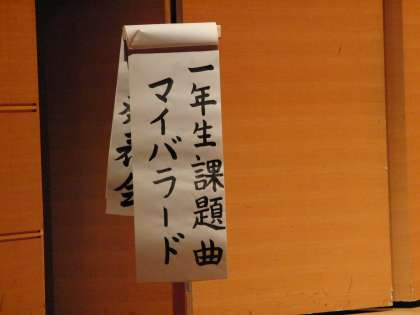 一年生課題曲
マイバラード
表会